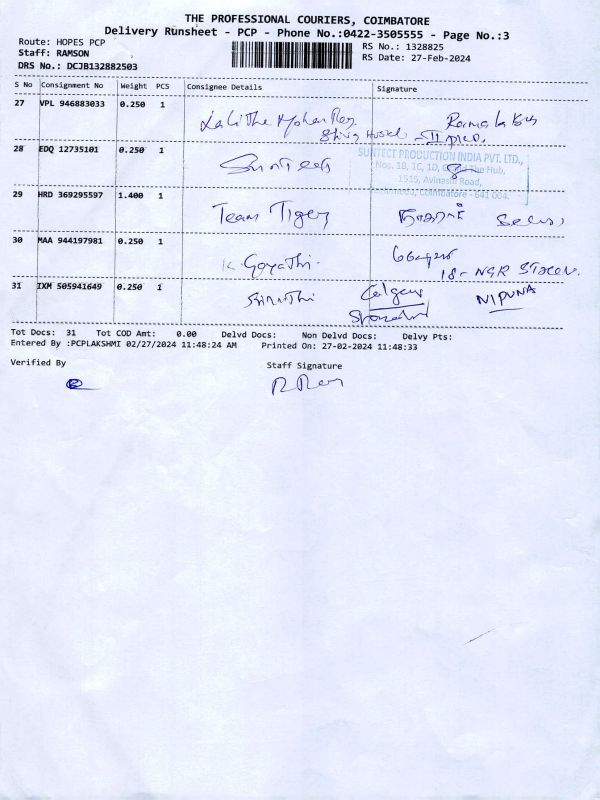 THE PROFESSIONAL COURIERS, COIMBATORE
Delivery Runsheet - PCP - Phone No.:0422-3505555 - Page No.:3
Route: HOPES PCP
RS No.: 1328825
Staff: RAMSON
RS Date: 27-Feb-2024
DRS No.: DCJB132882503
S No Consignment No Weight PCS Consignee Details Signature
27 VPL 946883033 0.250 1
28 EDQ 12735101 0.250 1
SUNTECT PRODUCTION INDIA PVT. LTD.,
Nos. 1B, 1C, 1D, The Hub,
1515, Avinashi Road,
Coimbatore - 641 004.
29 HRD 369295597 1.400 1
Team Tiger
30 MAA 944197981 0.250 1
K. Gayathri
18- NGR
31 IXM 505941649 0.250 1
NIPUNA
Tot Docs: 31 Tot COD Amt: 0.00 Delvd Docs: Non Delvd Docs: Delvy Pts:
Entered By :PCPLAKSHMI 02/27/2024 11:48:24 AM Printed On: 27-02-2024 11:48:33
Verified By
Staff Signature